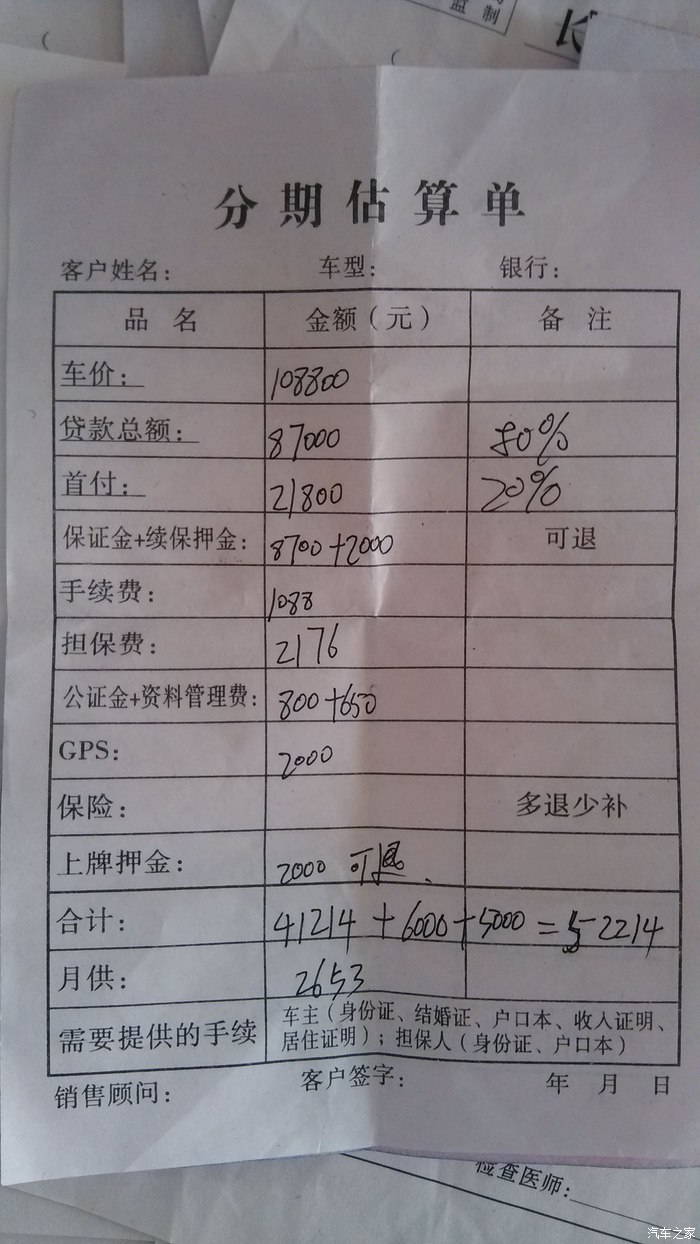 监制
长
分期估算单
客户姓名： 车型： 银行：
品名 金额（元） 备注
车价： 108800
贷款总额： 87000 80%
首付： 21800 20%
保证金+续保押金： 8700+2000 可退
手续费： 1088
担保费： 2176
公证金+资料管理费： 800+650
GPS： 2000
保险： 多退少补
上牌押金： 2000 可退
合计： 41214+6000+5000=52214
月供： 2653
需要提供的手续 车主（身份证、结婚证、户口本、收入证明、
居住证明）；担保人（身份证、户口本）
销售顾问： 客户签字： 年 月 日
检查医师：
汽车之家